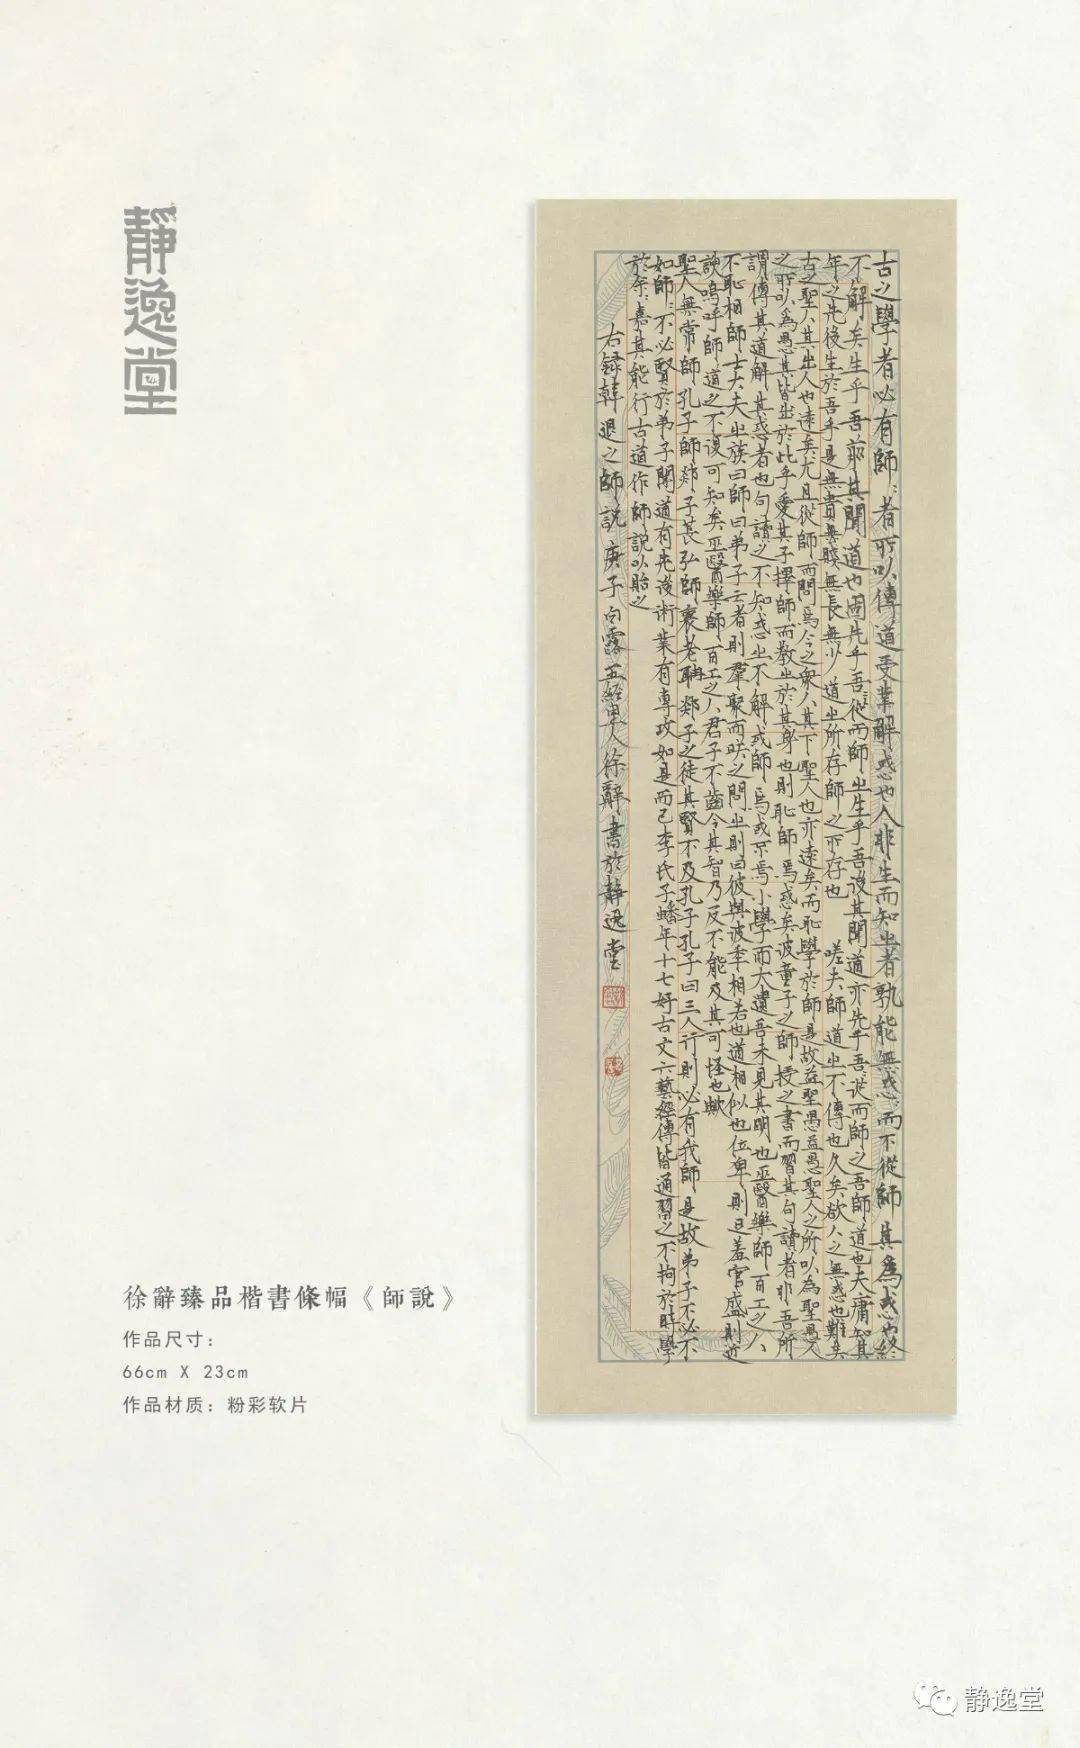 靜逸堂
古之學者必有師〻者所以傳道受業解惑也人非生而知之者孰能無惑〻而不從師其爲惑也終
不解矣生乎吾前其聞道也固先乎吾〻從而師之生乎吾後其聞道亦先乎吾〻從而師之吾師道也夫庸知其
年之先後生於吾乎是無貴無賤無長無少道之所存師之所存也 嗟夫師道之不傳也久矣欲人之無惑也難矣
古之聖人其出人也遠矣尤且從師而問焉今之衆人其下聖人也亦遠矣而恥學於師是故益聖愚益愚聖人之所以為聖愚人
之所以爲愚其皆出於此乎愛其子擇師而教之於其身也則恥師焉惑矣彼童子之師授之書而習其句讀者非吾所
謂傳其道解其惑者也句讀之不知惑之不解或師焉或不焉小學而大遺吾未見其明也巫醫樂師百工之人
不恥相師士大夫之族曰師曰弟子云者則羣聚而咲之問之則曰彼與彼季相若也道相似也位卑則足羞官盛則近
諛嗚呼師道之不復可知矣巫醫樂師百工之人君子不齒今其智乃反不能及其可怪也歟
聖人無常師孔子師郯子萇弘師襄老聃郯子之徒其賢不及孔子孔子曰三人行則必有我師是故弟子不必不
如師〻不必賢於弟子聞道有先後術業有專攻如是而已李氏子蟠年十七好古文六藝經傳皆通習之不拘於時學
於余〻嘉其能行古道作師說以貽之
右録韓退之師說庚子白露 徐辭書於靜逸堂
徐辭臻品楷書條幅《師說》
作品尺寸：
66cm X 23cm
作品材质：粉彩软片
静逸堂